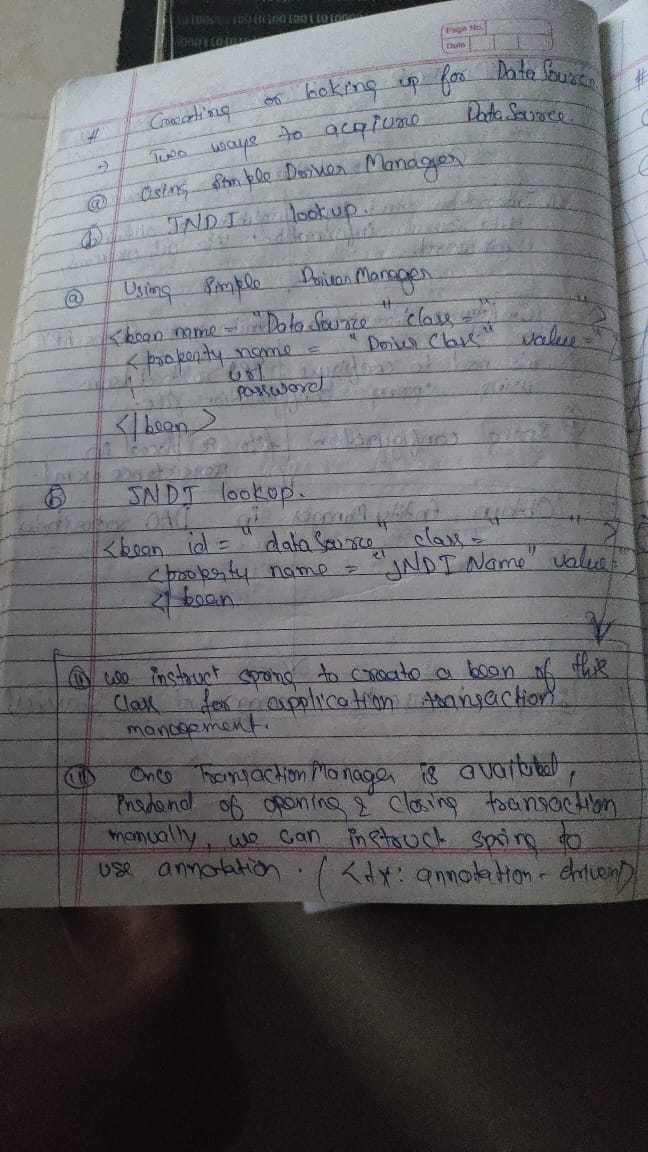 Page No.
Date
# Creating or looking up for Data Source
→ Two ways to acquire Data Source.
(a) Using Simple Driver Manager
(b) JNDI lookup.
(a) Using Simple Driver Manager
<bean name = "Data Source" class = " ">
< property name = "Driver Class" value = "
url
password
</bean>
(b) JNDI lookup.
<bean id = "data Source" class = " ">
<property name = "JNDI Name" value=
</bean
(ii) we instruct spring to create a bean of this
class for application transaction
management.
(iii) Once TransactionManager is availabel,
Instead of opening & closing transaction
manually, we can instruct spring to
use annotation. (<tx: annotation-driven>)